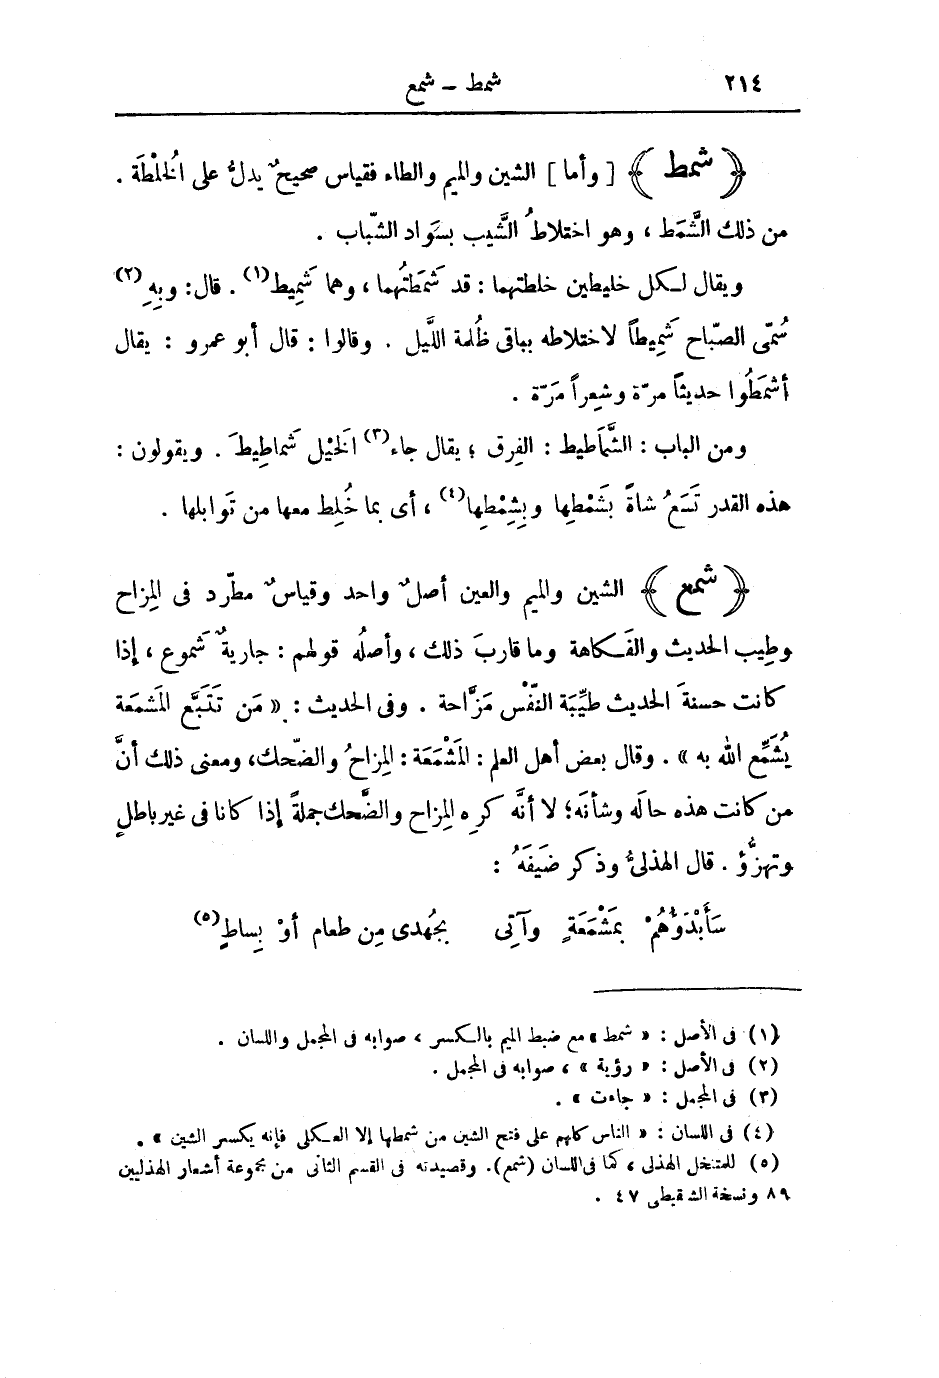 ٢١٤ شمط – شمع
﴿ شمط ﴾ [ وأما ] الشين والميم والطاء فقياس صحيحٌ يدلُّ على الخُلْطَة .
من ذلك الشَّمَط ، وهو اختلاطُ الشَّيب بسَواد الشّباب .
ويقال لكل خليطين خلطتهما : قد شَمَطتُهما ، وهما شَمِيط(١) . قال : وبِهِ(٢)
سُمّى الصّباح شَمِيطاً لاختلاطه بباقى ظُلمة اللَّيل . وقالوا : قال أبو عمرو : يقال
أشمَطُوا حديثاً مرّة وشِعراً مَرّة .
ومن الباب : الشَّماطيط : الفِرق ؛ يقال جاء(٣) الخَيْل شَماطِيطَ . ويقولون :
هذه القدر تَسَعُ شاةً بشَمْطِها وبِشِمْطِها(٤) ، أى بما خُلِط معها من تَوابلها .
﴿ شمع ﴾ الشين والميم والعين أصلٌ واحد وقياسٌ مطّرد فى المِزاح
وطِيب الحديث والفَكاهة وما قاربَ ذلك ، وأصلُه قولهم : جاريةٌ شَموع ، إذا
كانت حسنةَ الحديث طيِّبَة النَّفْس مَزَّاحة . وفى الحديث : « مَن تَتَبَّع المَشمَعة
يُشَمِّع الله به » . وقال بعض أهل العلم : المَشْمَعَة : المِزاحُ والضّحك، ومعنى ذلك أنَّ
من كانت هذه حالَه وشأنَه؛ لا أنَّه كره المِزاح والضَّحك جملةً إذا كانا فى غير باطلٍ
وتهزُّؤ . قال الهذلىُّ وذكر ضَيفَهُ :
سَأَبْدَؤُهُمْ بمَشْمَعَةٍ وآتِى بجُهْدى مِن طعام أوْ بِساطِ(٥)
(١) فى الأصل : « شمط » مع ضبط الميم بالكسر ، صوابه فى المجمل واللسان .
(٢) فى الأصل : « رؤبة » ، صوابه فى المجمل .
(٣) فى المجمل : « جاءت » .
(٤) فى اللسان : « الناس كلهم على فتح الشين من شمطها إلا العكلى فإنه يكسر الشين » .
(٥) للمتنخل الهذلى ، كما فى اللسان (شمع). وقصيدته فى القسم الثانى من مجموعة أشعار الهذليين
٨٩ ونسخة الشنقيطى ٤٧ .